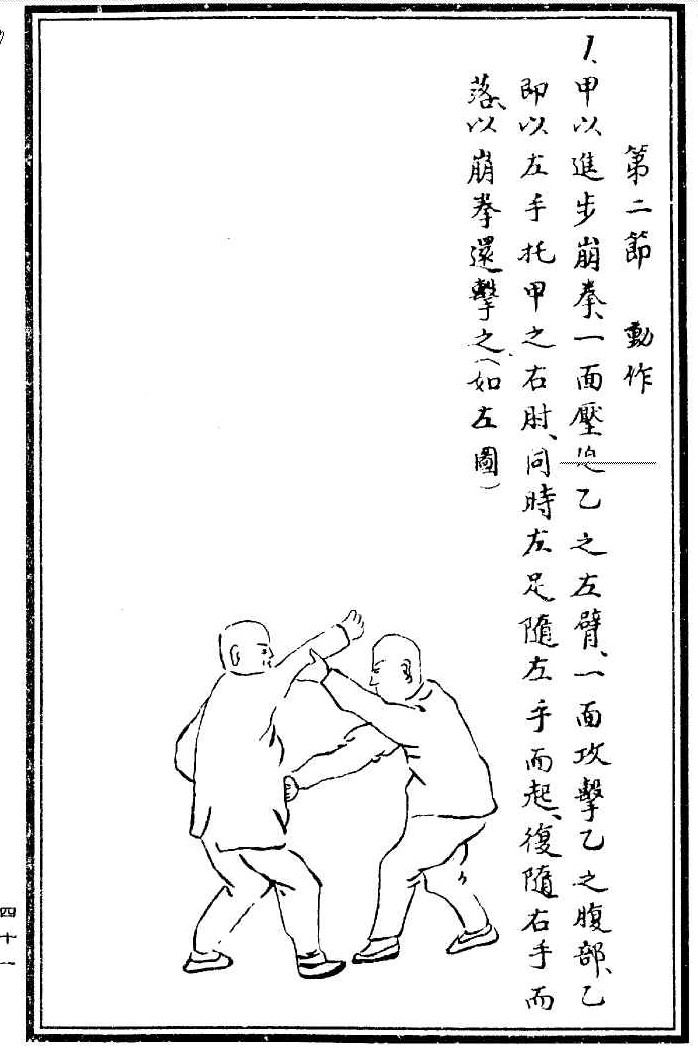 第二節 動作
1、甲以進步崩拳、一面壓迫乙之左臂、一面攻擊乙之腹部、乙
即以左手托甲之右肘、同時左足隨左手而起、復隨右手而
落、以崩拳還擊之、(如左圖)
四十一